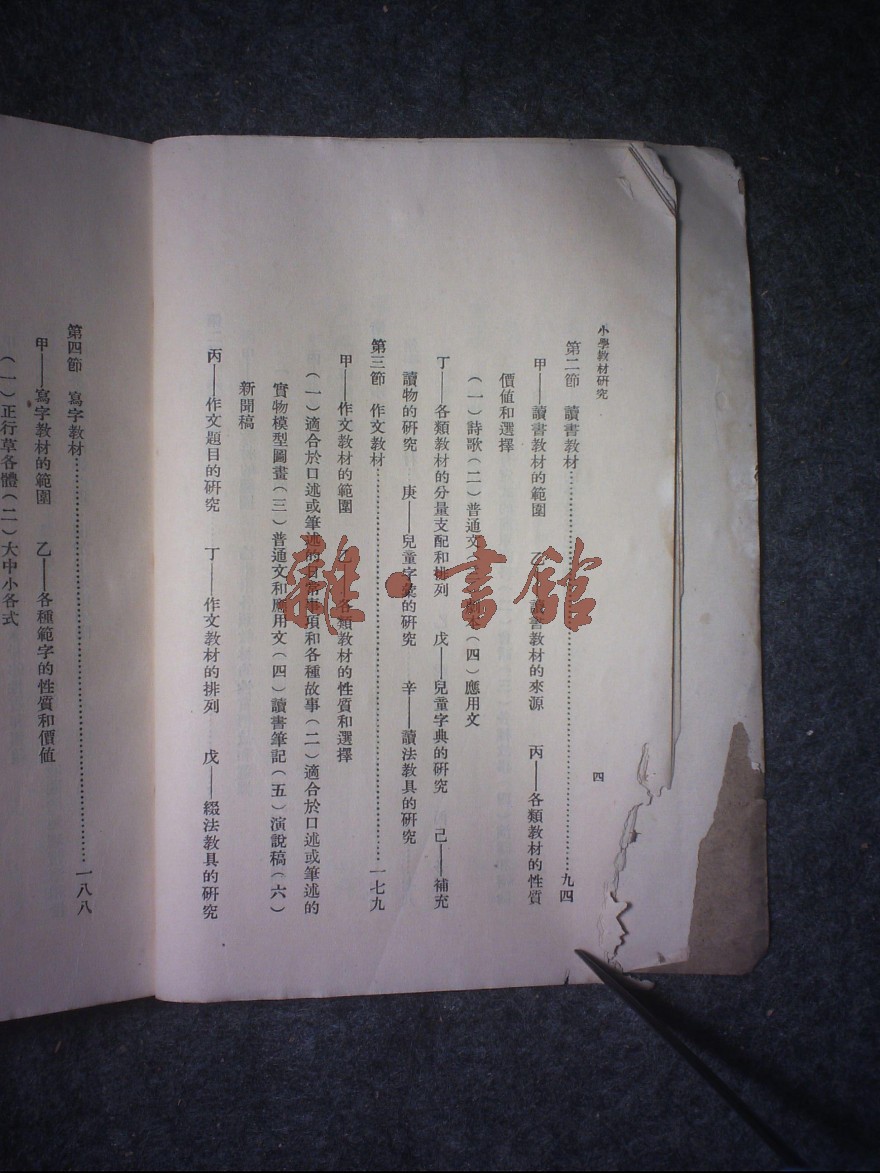 小學教材研究
四
第二節　讀書教材……九四
甲——讀書教材的範圍　乙——讀書教材的來源　丙——各類教材的性質
價值和選擇
（一）詩歌（二）普通文（三）劇本（四）應用文
丁——各類教材的分量支配和排列　戊——兒童字典的研究　己——補充
讀物的研究　庚——兒童字彙的研究　辛——讀法教具的研究
第三節　作文教材……一七九
甲——作文教材的範圍　乙——各類教材的性質和選擇
（一）適合於口述或筆述的日常事項和各種故事（二）適合於口述或筆述的
實物模型圖畫（三）普通文和應用文（四）讀書筆記（五）演說稿（六）
新聞稿
丙——作文題目的研究　丁——作文教材的排列　戊——綴法教具的研究
第四節　寫字教材……一八八
甲——寫字教材的範圍　乙——各種範字的性質和價值
（一）正行草各體（二）大中小各式
雜·書館